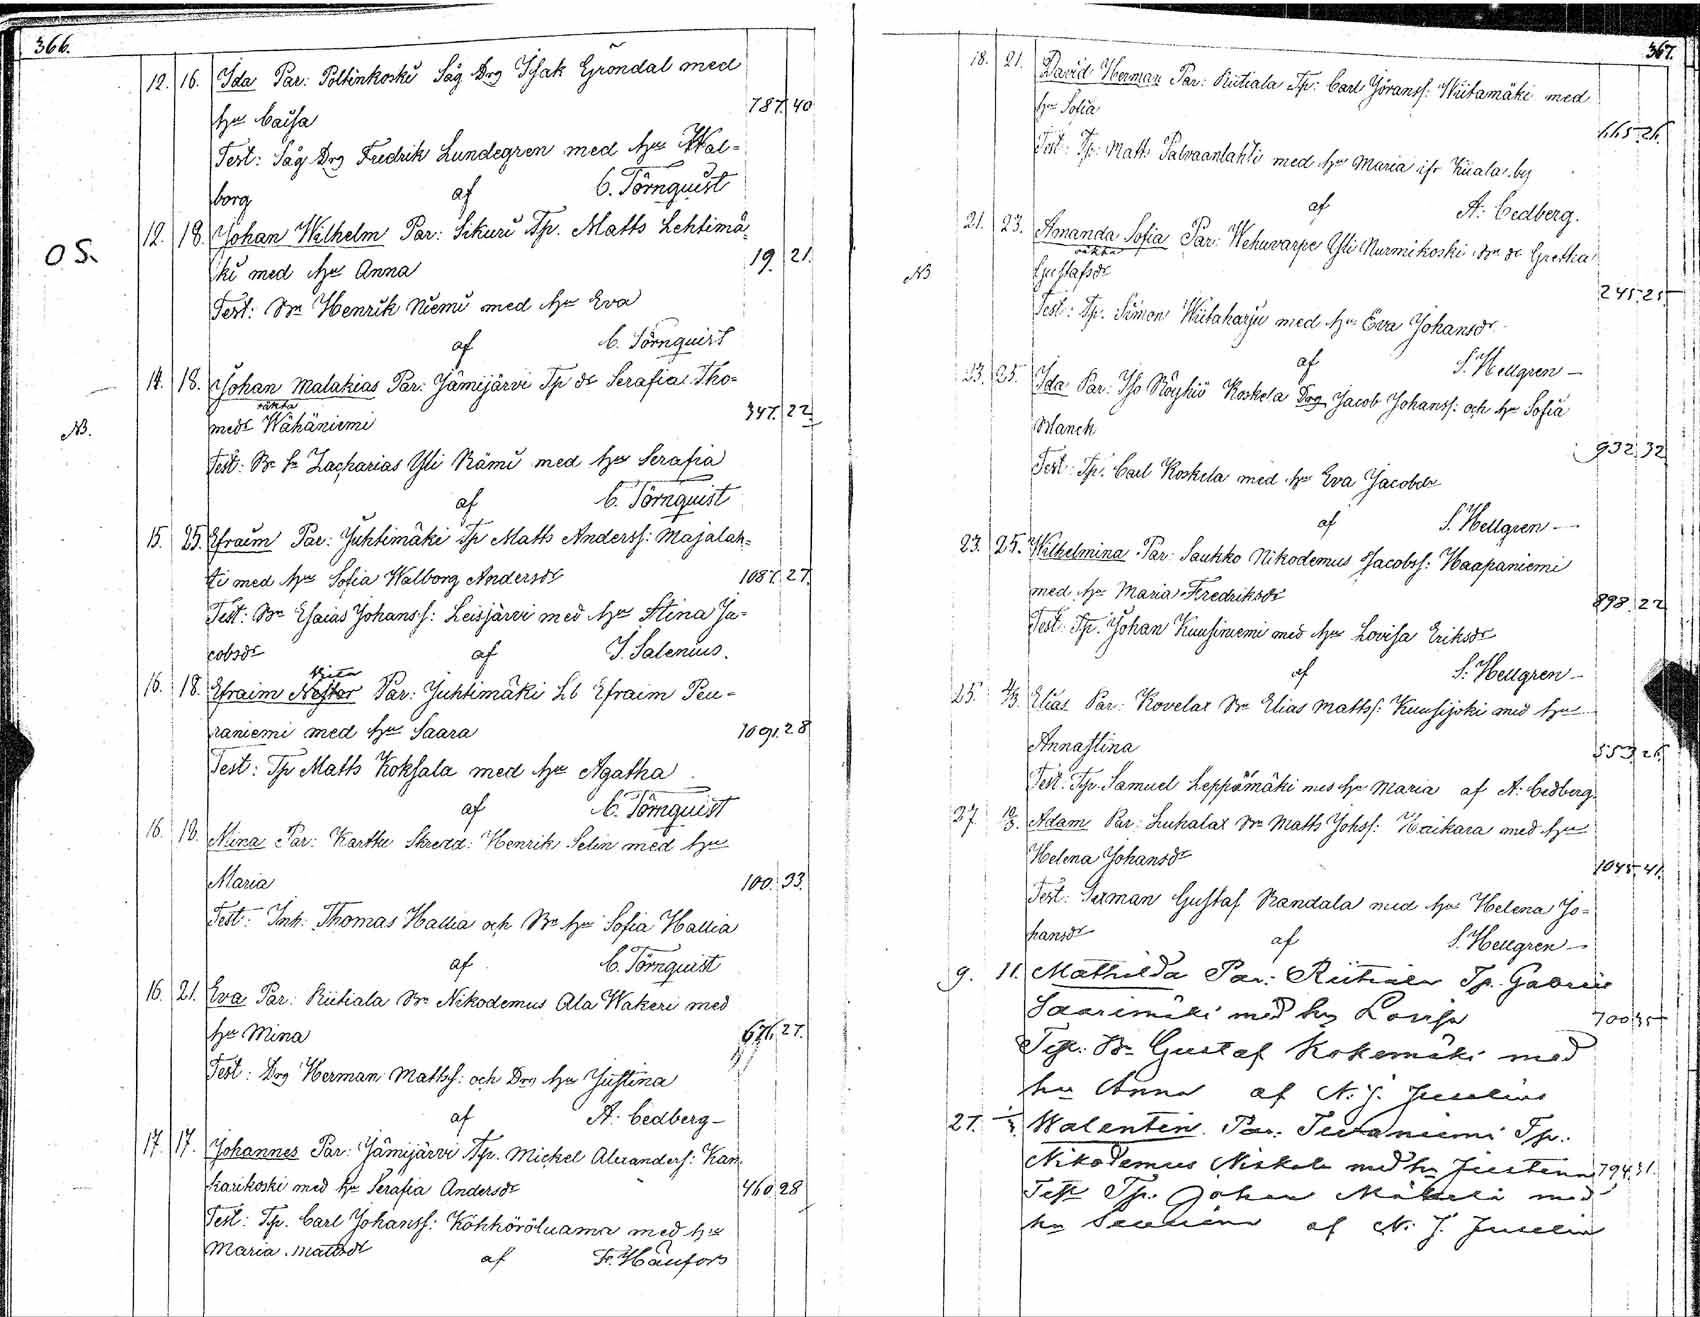 366.
12. 16. Ida Par: Poltinkoski Såg Drg Isak Gröndal med
hu Caisa 787. 40
Test: Såg Drg Fredrik Lundegren med hu Wal=
borg af C. Törnquist
12. 18. Johan Wilhelm Par: Sikuri Tp. Matts Lehtimä=
OS.
ki med hu Anna 19. 21.
Test: Bn Henrik Niemi med hu Eva
af C. Törnquist
14. 18. Johan Malakias Par: Jämijärvi Tp dr Serafia Tho=
oäkta
NB. medr Wähäniemi 347. 22
Test: Bn Sn Zacharias Yli Rämi med hu Serafia
af C. Törnquist
15. 25. Efraim Par: Juhtimäki Tp Matts Anderss: Majalah=
ti med hu Sofia Walborg Andersdr 1087. 27
Test: Bn Esaias Johanss: Leisjärvi med hu Stina Ja=
cobsdr af I. Salenius.
16. 18. Efraim Nestor Par: Juhtimäki Lb Efraim Peu=
raniemi med hu Saara 1091. 28
Test: Tp Matts Koksala med hu Agatha
af C. Törnquist
16. 18. Miina Par: Karttu Skredd: Henrik Selin med hu
Maria 100. 33.
Test: Inh. Thomas Hallia och Bn hu Sofia Hallia
af C. Törnquist
16. 21. Eva Par: Riitiala Bn Nikodemus Ala Wakeri med
hu Mina 676. 27.
Test: Drg Herman Matss: och Drg hu Justina
af A. Cedberg
17. 17. Johannes Par: Jämijärvi Tp. Mickel Alexanders: Kan
karikoski med hu Serafia Andersdr 460 28
Test: Tp. Carl Johanss: Köhköröluama med hu
Maria Mattsdr af Fr. Häufors
367.
18. 21. David Herman Par: Riitiala Tp: Carl Jöranss: Wiitamäki med
hu Sofia 665. 26.
Test: Tp: Matts Palvaanlahti med hu Maria ifr Kiiala by
af A: Cedberg.
21. 23. Amanda Sofia Par: Wehuvarpe Yli Nurmikoski Bn dr Gretha
oäkta
NB Gustafsdr 245 25
Test: Tp. Simon Wiitaharju med hu Eva Johansdr
af S. Hellgren
23. 25. Ida Par: Iso Röyhiö Koskela Drg Jacob Johanss: och hu Sofia
Blanck 932. 32
Test: Tp. Carl Koskela med hu Eva Jacobdr
af S. Hellgren
23. 25. Wilhelmina Par: Saukko Nikodemus Jacobss: Haapaniemi
med hu Maria Fredriksdr 898. 22
Test: Tp. Johan Kuusiniemi med hu Lovisa Eriksdr
af S. Hellgren
25. 4/3. Elias Par: Kovelax Bn Elias Matss: Kuusijoki med hu
Annastina 553 26.
Test: Tp. Samuel Leppämäki med hu Maria af A. Cedberg.
27. Adam Par: Luhalax Bn Matts Johss: Haikara med hu
Helena Johansdr 1045. 41.
Test: Sexman Gustaf Randala med hu Helena Jo=
hansdr af S. Hellgren
9. 11. Mathilda Par: Riitiala Tp. Gabriel
Saarimäki med hu Lovisa 700 35
Test: Bn Gustaf Kokemäki med
hu Anna af N. J. Juselius
27. Walentin Par: Tevaniemi Tp.
Nikodemus Niskala med hu Justina 794. 31.
Test Tp. Johan Mäkelä med
hu af N. J. Juselius